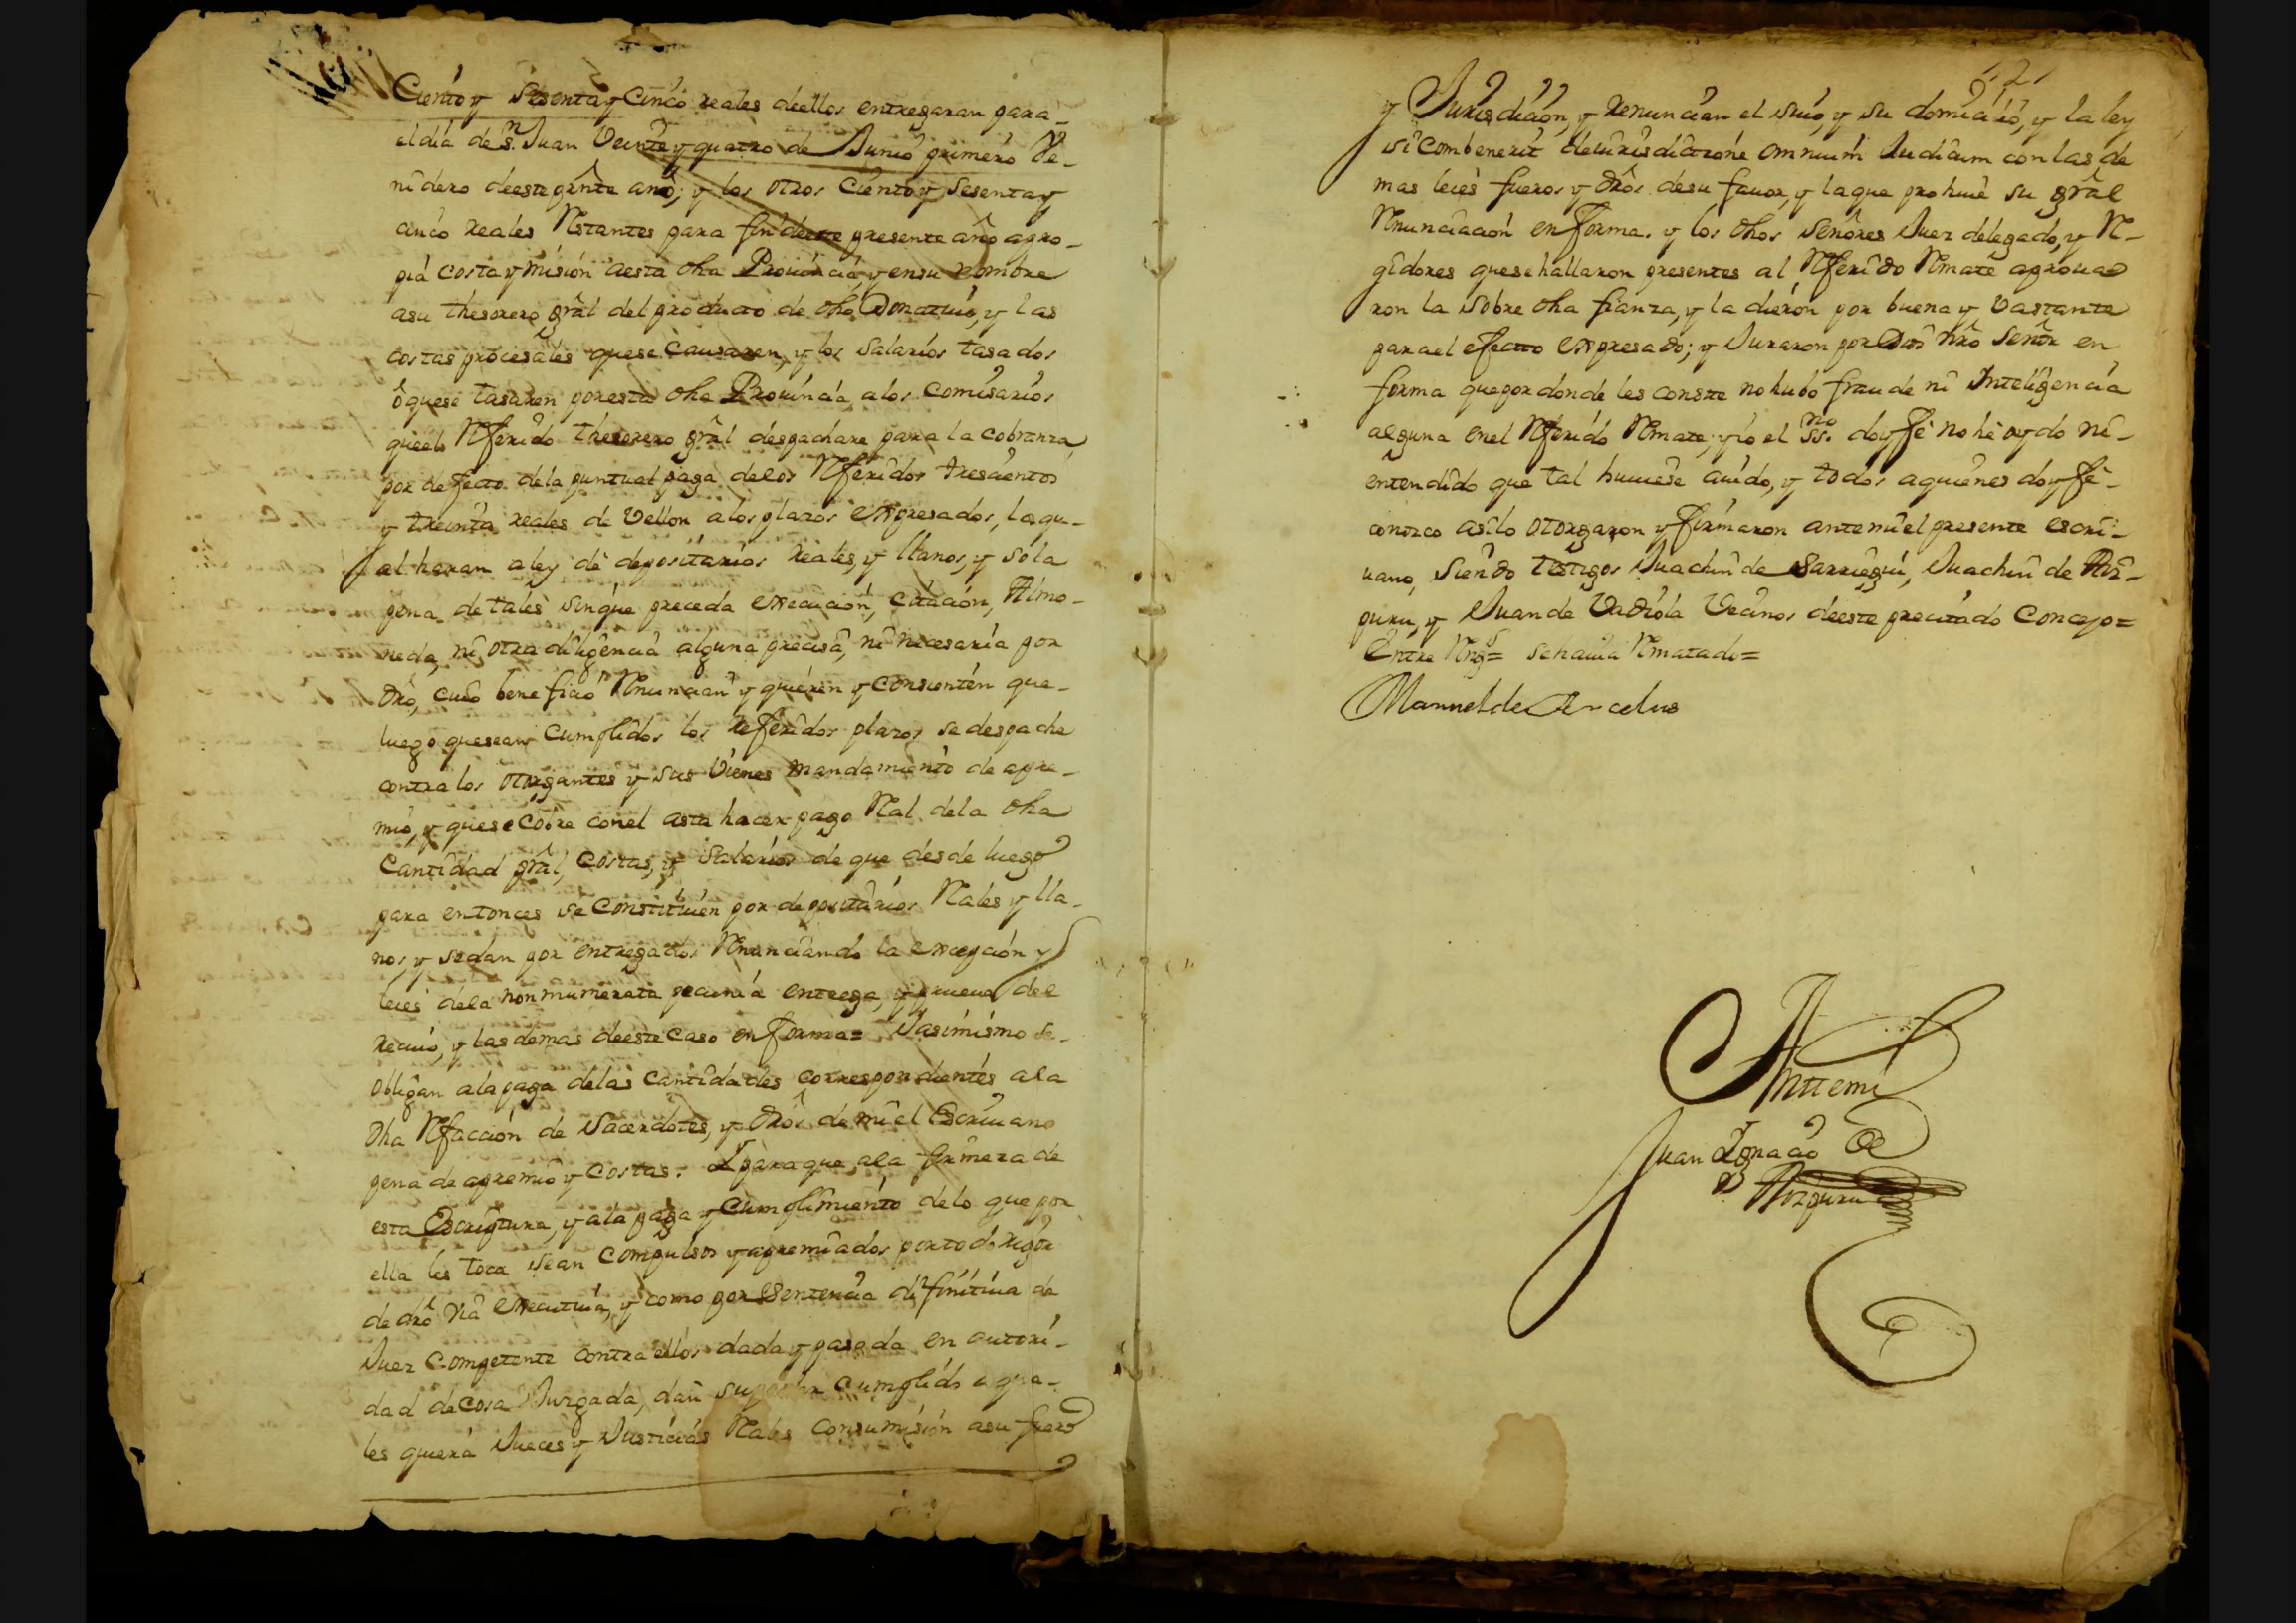 Ciento y Sesenta y Cinco reales de ellos entregaran para
el día de Sn. Juan Veinte y quatro de Junio primero Ve-
nidero de este prnte año; y los otros Ciento y Sesenta y
cinco reales Rstantes para fin de este presente año a pro-
pia costa y misión a esta dha Prouincia, y en su nombre
a su thesorero grâl del producto de dho Donatiuo, y las
costas procesales que se Causaren, y los Salarios tasados
ô que se tasaren por esta dha Prouincia a los Comisarios
que el Rferido thesorero grâl despachare para la cobranza
por defecto de la puntual paga de los Rferidos trescientos
y treinta reales de Vellon a los plazos expresados, la qu-
al haran a ley de depositarios Reales, y llanos, y so la
pena de tales sin que preceda execución, Citación, Almo-
neda, ni otra diligencia alguna precisa, ni necesaria por
dro, cuio beneficio Rnuncian y quieren y consienten que
luego que sean Cumplidos los Referidos plazos se despache
contra los otorgantes y sus Vienes mandamiento de apre-
mio, y que se cobre con el asta hacer pago Ral de la dha
Cantidad grâl, Costas, y Salarios de que desde luego
para entonces se Constituien por depositarios Rales y lla-
nos, y se dan por entregados Rnunciando la excepción y
leies de la non numerata pecunia entrega, y prueua del
reciuo, y las demas de este Caso en forma= Y asimismo se
obligan a la paga de las Cantidades correspondientes a la
Dha Rfacción de Sacerdotes, y Dros de mi el Escriuano
pena de apremio y Costas. Y para que a la firmeza de
esta Escriptura, y a la paga y Cumplimiento de lo que por
ella les toca sean Compulsos y apremiados por todo rigor
de dro Via executiua, y como por Sentencia difinitiua de
Juez Competente contra ellos dada y pasada en autori-
dad de Cosa Juzgada, dan su poder Cumplido a qua-
les quiera Jueces y Justicias Rales Con sumisión a su fuero
121
y Jurisdición, y Renuncian el suio, y su domicilio, y la ley
si Combenerit de iurisdictione omnium Iudicum con las de
mas leies fueros y drôs de su fauor, y la que prohiue su grâl
Rnunciación en forma. y los dhos Señores Juez delegado, y R-
gidores que se hallaron presentes al Rferido Rmate aproua
ron la sobre dha fianza, y la dieron por buena y Vastante
para el efecto expresado; y Juraron por Dios nrô Señor en
forma que por donde les conste no hubo fraude ni Inteligencia
alguna en el Rferido Rmate; y io el ssno. doy fê no hê oydo ni
entendido que tal huuiese auido, y todos a quienes doy fê
conozco asi lo otorgaron y firmaron ante mi el presente escri-
uano, Siendo testigos Juachin de Sarriegui, Juachin de Az-
puru, y Juan de Vadiola Vecinos de este precitado Concejo=
Entre Rngs= se hauia Rmatado=
Manuel de Arcelus
Antte mi
Juan Ignacio de
Azpuru